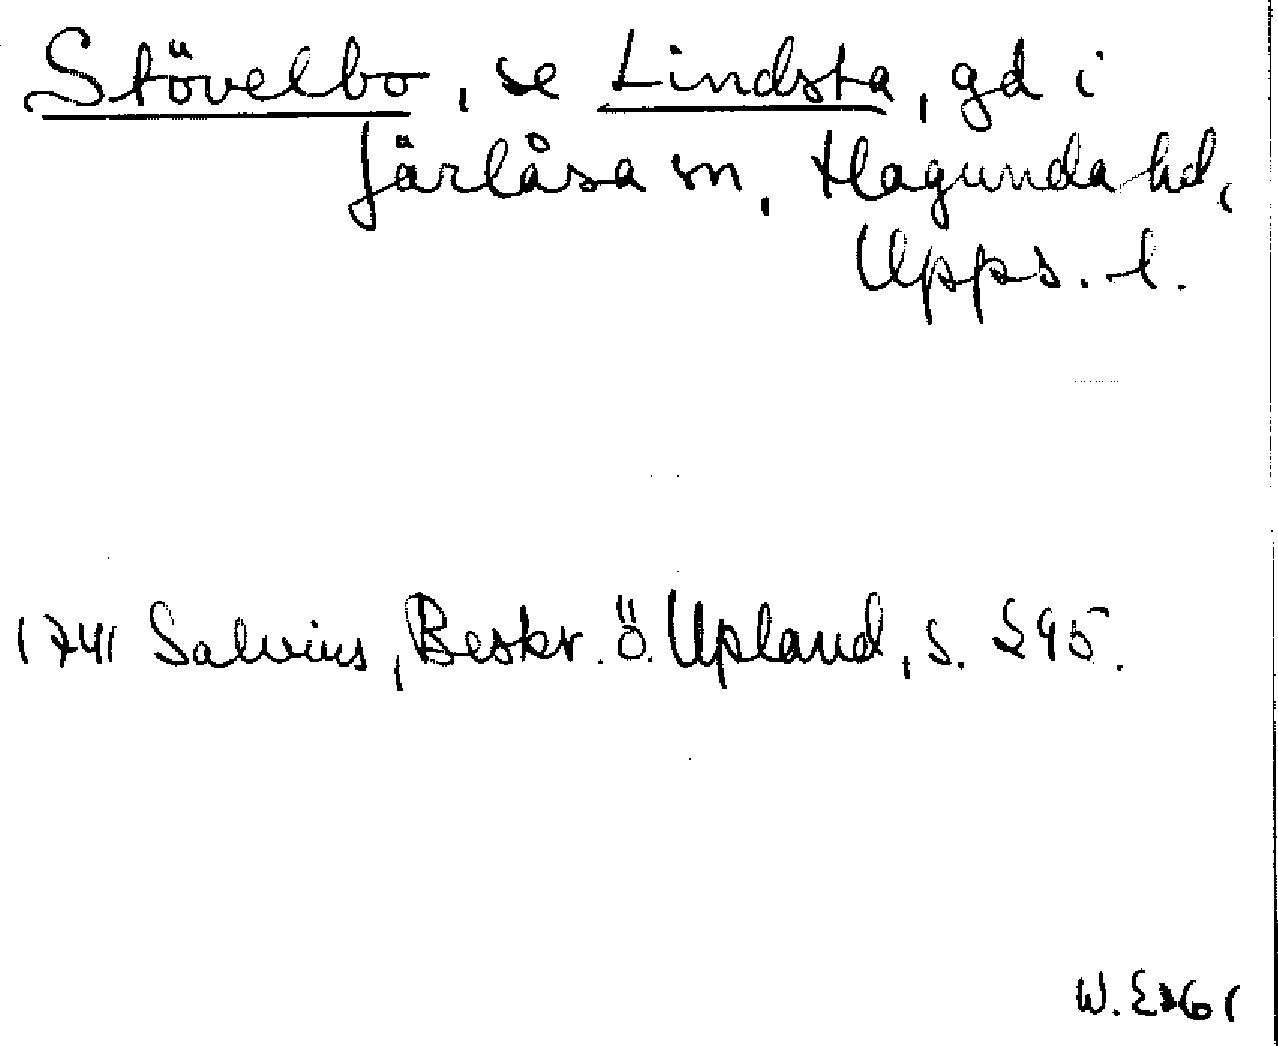 Stövelbo, se Lindsta, gd i
Järlåsa sn, Hagunda hd,
Upps. l.
1741 Salvius, Beskr. ö. Upland, s. 295.
W.